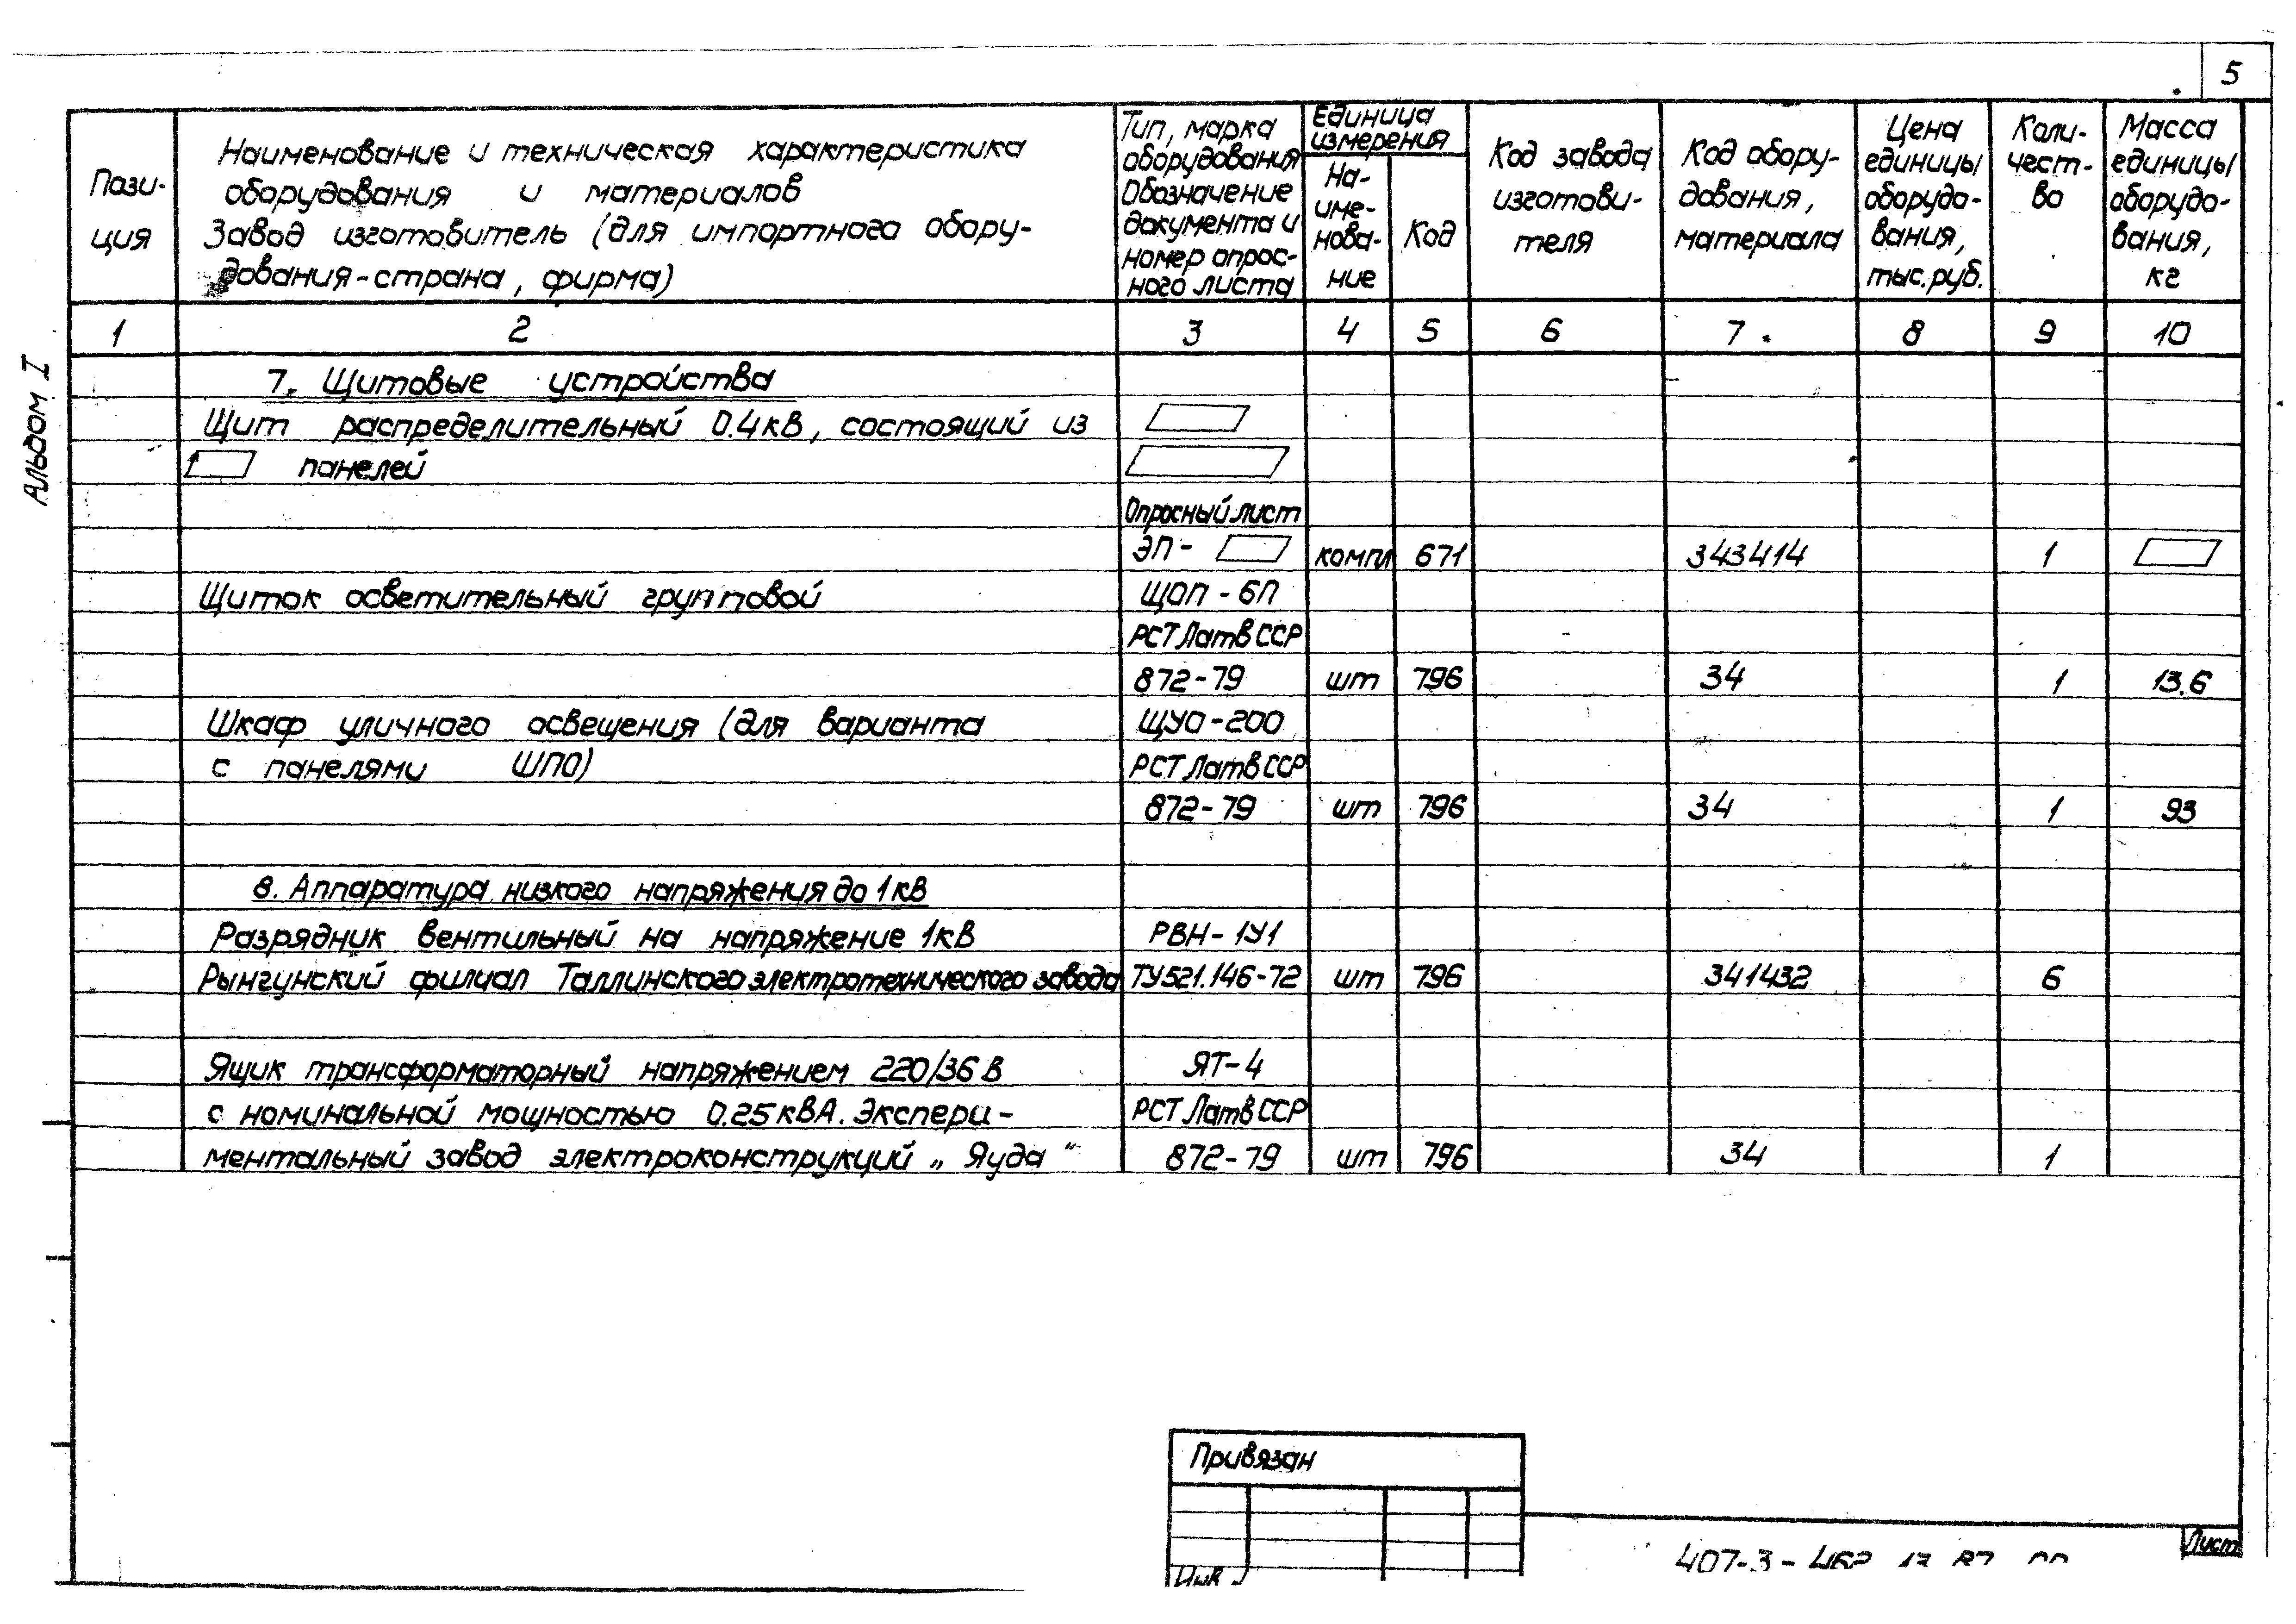 5
Альбом I
Пози-
ция
Наименование и техническая характеристика
оборудования и материалов
Завод изготовитель (для импортного обору-
дования-страна, фирма)
Тип, марка
оборудования
Обозначение
документа и
номер опрос-
ного листа
Единица
измерения
На-
име-
нова-
ние
Код
Код завода
изготови-
теля
Код обору-
дования,
материала
Цена
единицы
оборудо-
вания,
тыс.руб.
Коли-
чест-
во
Масса
единицы
оборудо-
вания,
кг
1 2 3 4 5 6 7 8 9 10
7. Щитовые устройства
Щит распределительный 0.4кВ, состоящий из
панелей
Опросный лист
ЭП- компл 671 343414 1
Щиток осветительный групповой ЩОП-6П
РСТ Латв ССР
872-79 шт 796 34 1 13.6
Шкаф уличного освещения (для варианта ЩУО-200
с панелями ЩПО) РСТ Латв ССР
872-79 шт 796 34 1 93
8. Аппаратура низкого напряжения до 1кВ
Разрядник вентильный на напряжение 1кВ РВН-1У1
Рынгунский филиал Таллинского электротехнического завода ТУ521.146-72 шт 796 341432 6
Ящик трансформаторный напряжением 220/36 В ЯТ-4
с номинальной мощностью 0.25кВА. Экспери- РСТ Латв ССР
ментальный завод электроконструкций „Яуда“ 872-79 шт 796 34 1
Привязан
Инв
407-3-
Лист